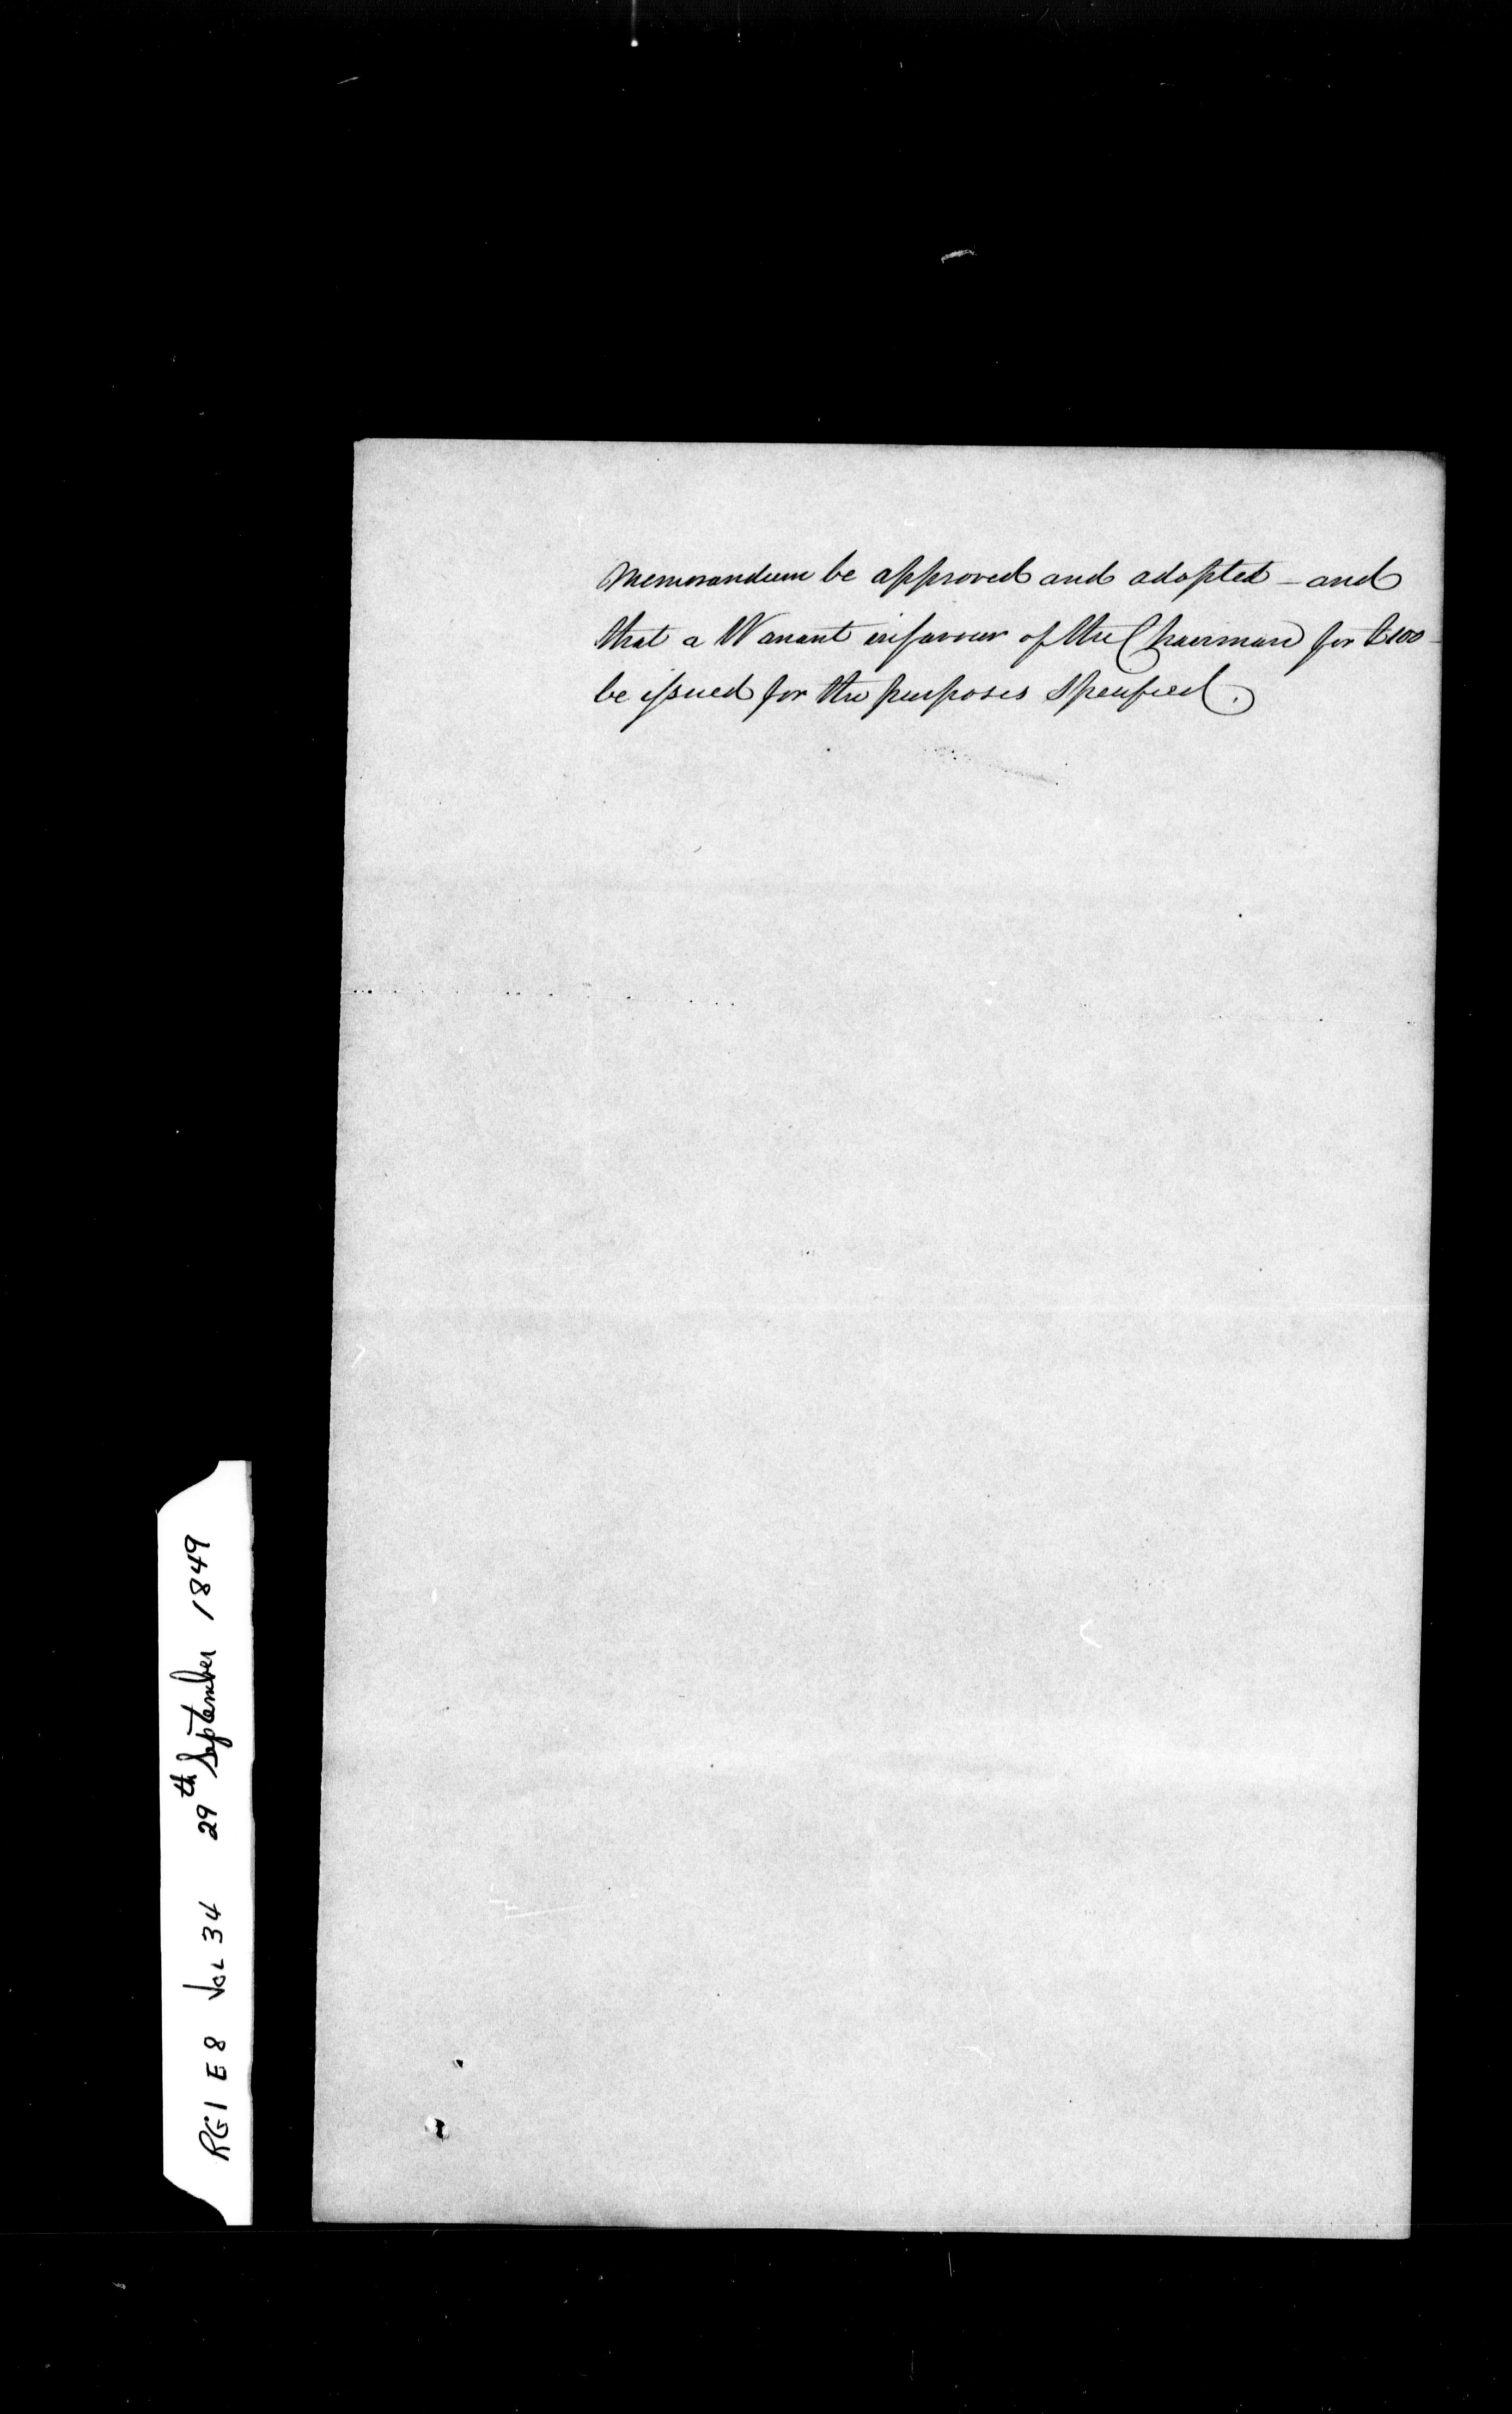 Memorandum be approved and adopted – and
that a Warrant in favour of the Chairman for £100
be issued for the purposes specified.
RG1 E8 Vol 34 29th September 1849